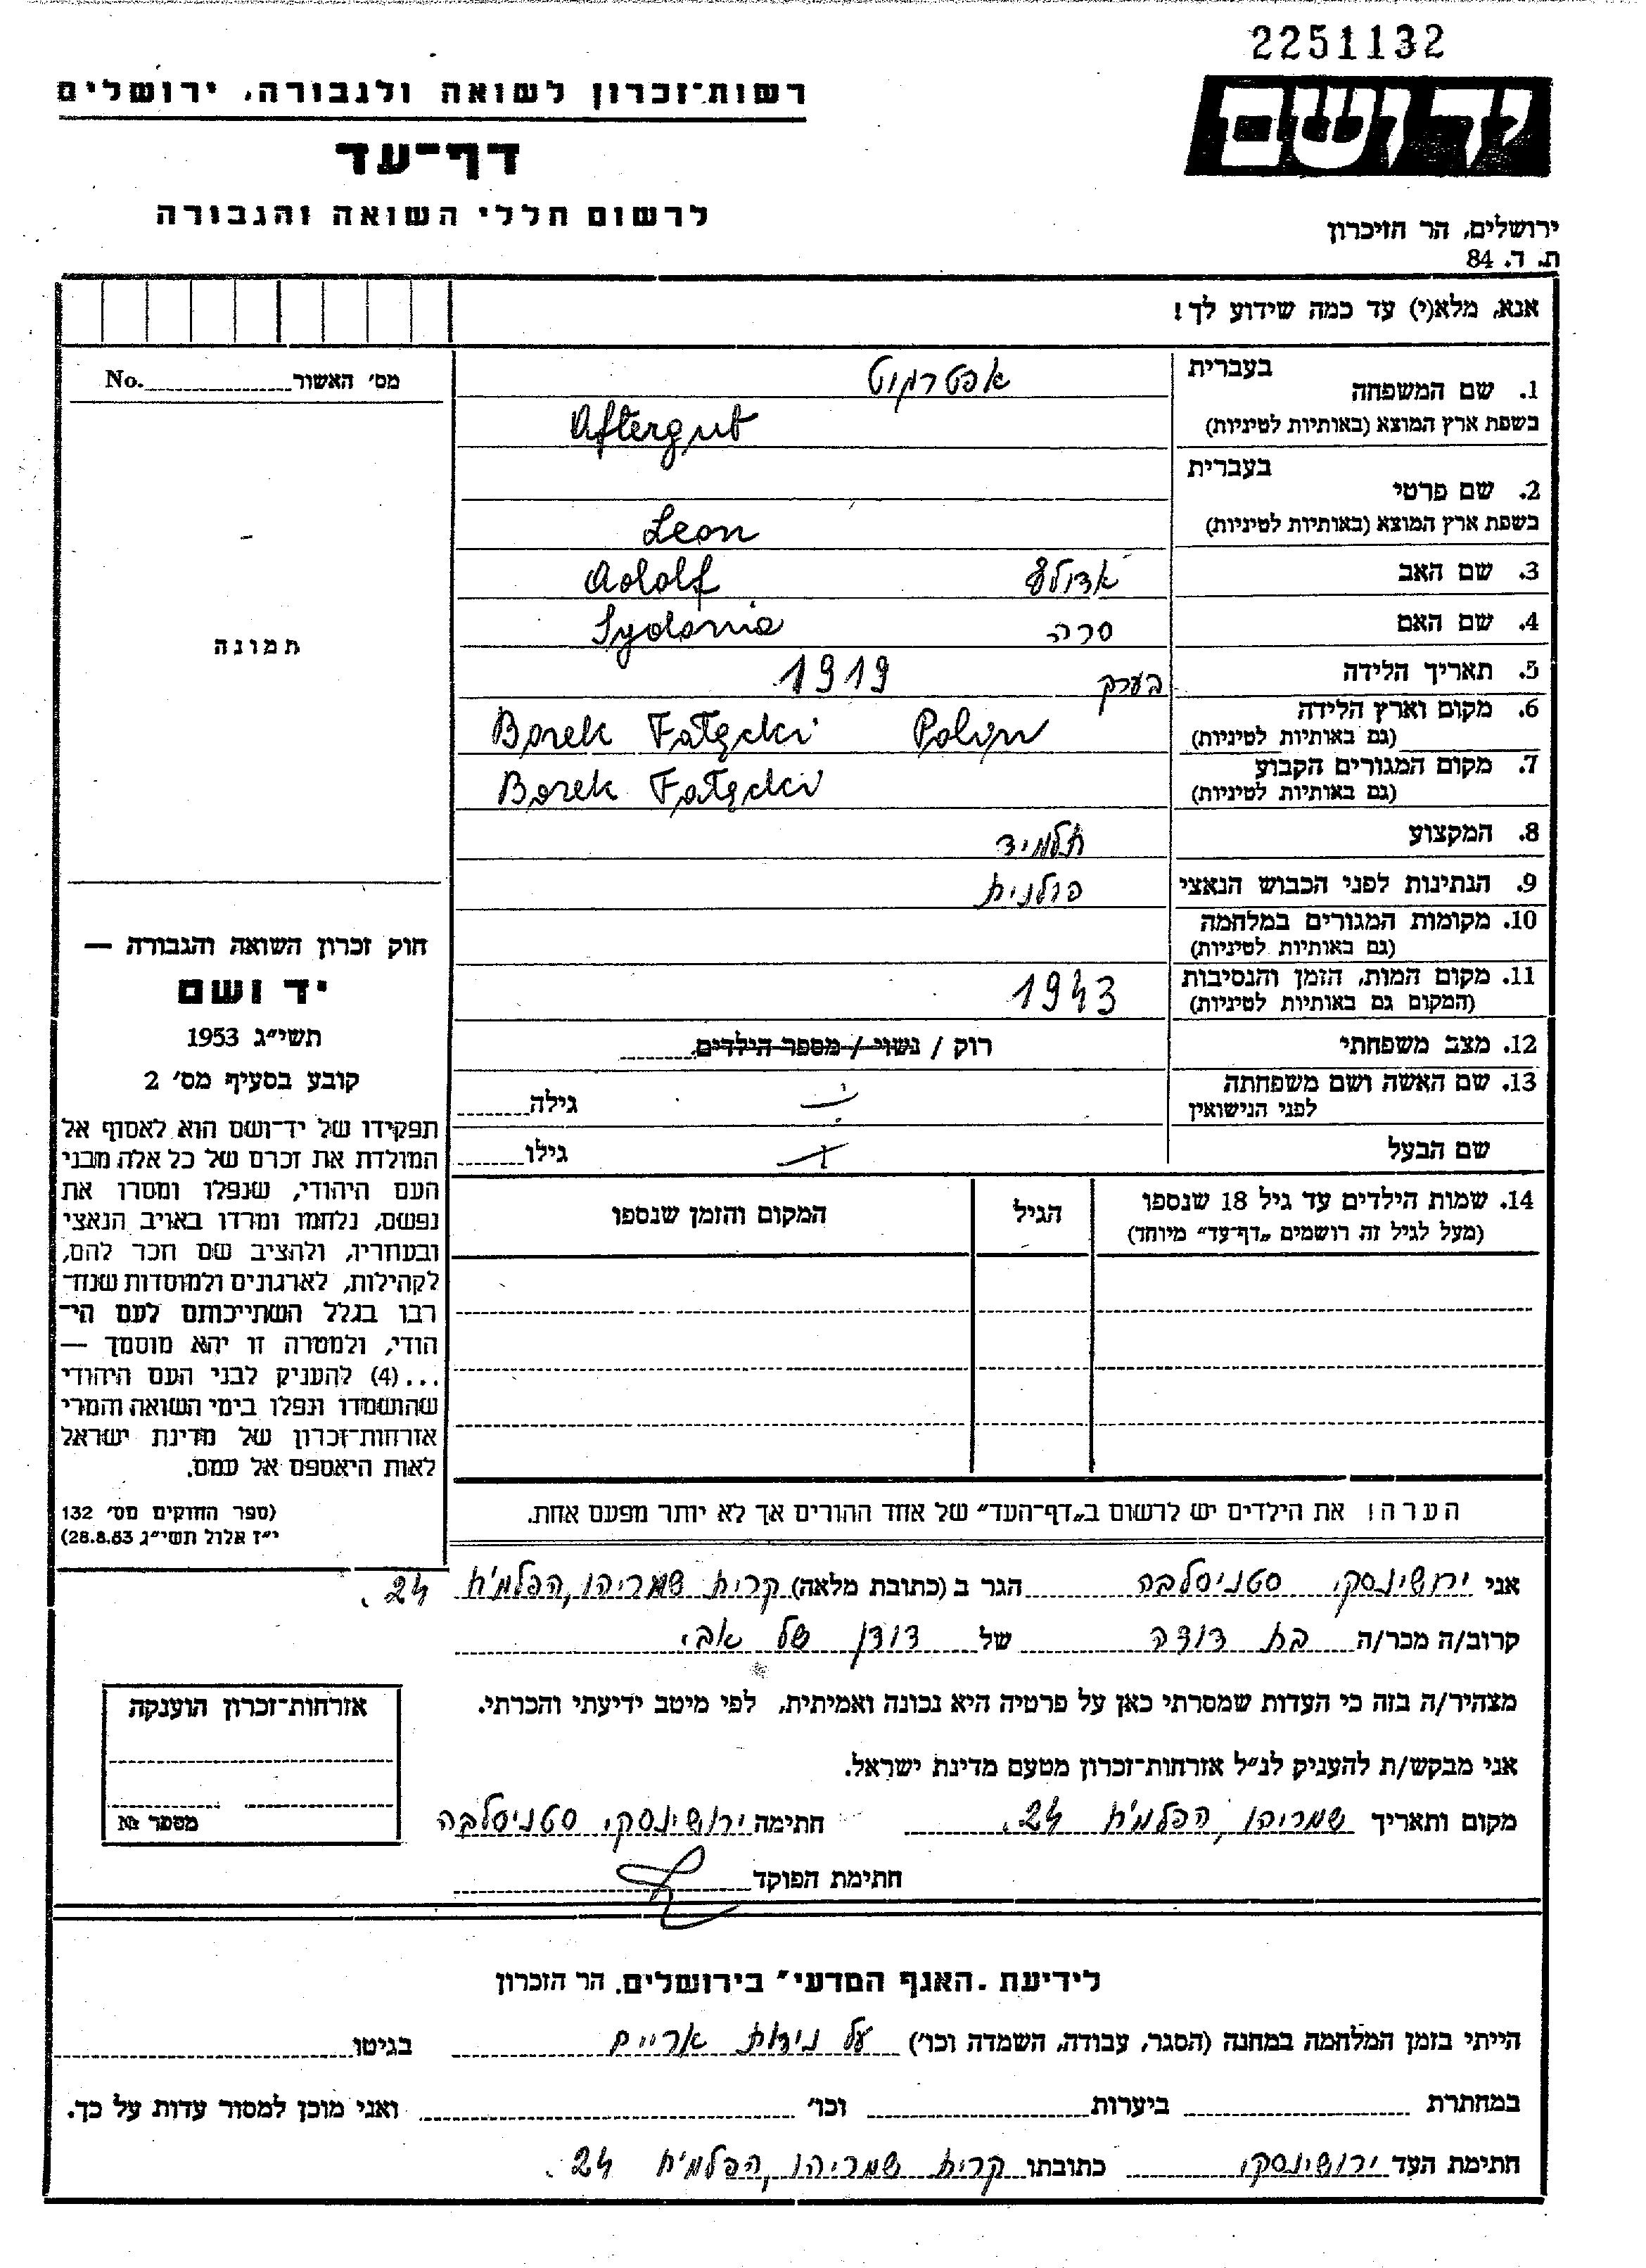 2251132
יד ושם
רשות־זכרון לשואה ולגבורה, ירושלים
דף־עד
לרשום חללי השואה והגבורה
ירושלים, הר הזיכרון
ת. ד. 84
אנא, מלא(י) עד כמה שידוע לך!
1. שם המשפחה בעברית אפטרגוט
בשפת ארץ המוצא (באותיות לטיניות) Aftergut
2. שם פרטי בעברית
בשפת ארץ המוצא (באותיות לטיניות) Leon
3. שם האב אדולף Adolf
4. שם האם סרה Sydonia
5. תאריך הלידה הערך 1919
6. מקום וארץ הלידה Borek Fałęcki Polin
(גם באותיות לטיניות)
7. מקום המגורים הקבוע Borek Fałęcki
(גם באותיות לטיניות)
8. המקצוע תלמיד
9. הנתינות לפני הכבוש הנאצי פולנית
10. מקומות המגורים במלחמה
(גם באותיות לטיניות)
11. מקום המות, הזמן והנסיבות 1943
(המקום גם באותיות לטיניות)
12. מצב משפחתי רוק / נשוי / מספר הילדים
13. שם האשה ושם משפחתה
לפני הנישואין גילה
שם הבעל גילו
14. שמות הילדים עד גיל 18 שנספו הגיל המקום והזמן שנספו
(מעל לגיל זה רושמים „דף־עד״ מיוחד)
מס׳ האשור No.
תמונה
חוק זכרון השואה והגבורה —
יד ושם
תשי״ג 1953
קובע בסעיף מס׳ 2
תפקידו של יד־ושם הוא לאסוף אל
המולדת את זכרם של כל אלה מבני
העם היהודי, שנפלו ומסרו את
נפשם, נלחמו ומרדו באויב הנאצי
ובעוזריו, ולהציב שם וזכר להם,
לקהילות, לארגונים ולמוסדות שנח־
רבו בגלל השתייכותם לעם הי־
הודי, ולמטרה זו יהא מוסמך —
...(4) להעניק לבני העם היהודי
שהושמדו ונפלו בימי השואה והמרי
אזרחות־זכרון של מדינת ישראל
לאות היאספם אל עמם.
(ספר החוקים מס׳ 132
י״ז אלול תשי״ג 28.8.53)
הערה! את הילדים יש לרשום ב„דף־העד״ של אחד ההורים אך לא יותר מפעם אחת.
אני ירושינסקי סטניסלבה הגר ב (כתובת מלאה) קרית שמריהו, הפלמ״ח 24.
קרוב/ה מכר/ה בת דודה של דודן של אבי
מצהיר/ה בזה כי העדות שמסרתי כאן על פרטיה היא נכונה ואמיתית, לפי מיטב ידיעתי והכרתי.
אני מבקש/ת להעניק לנ״ל אזרחות־זכרון מטעם מדינת ישראל.
מקום ותאריך שמריהו, הפלמ״ח 24. חתימה ירושינסקי סטניסלבה
חתימת הפוקד
אזרחות־זכרון הוענקה
מספר №
לידיעת „האגף המדעי״ בירושלים, הר הזכרון
הייתי בזמן המלחמה במחנה (הסגר, עבודה, השמדה וכו׳) על ניירות אריים בגיטו
במחתרת ביערות וכו׳ ואני מוכן למסור עדות על כך.
חתימת העד ירושינסקי כתובתו קרית שמריהו, הפלמ״ח 24.